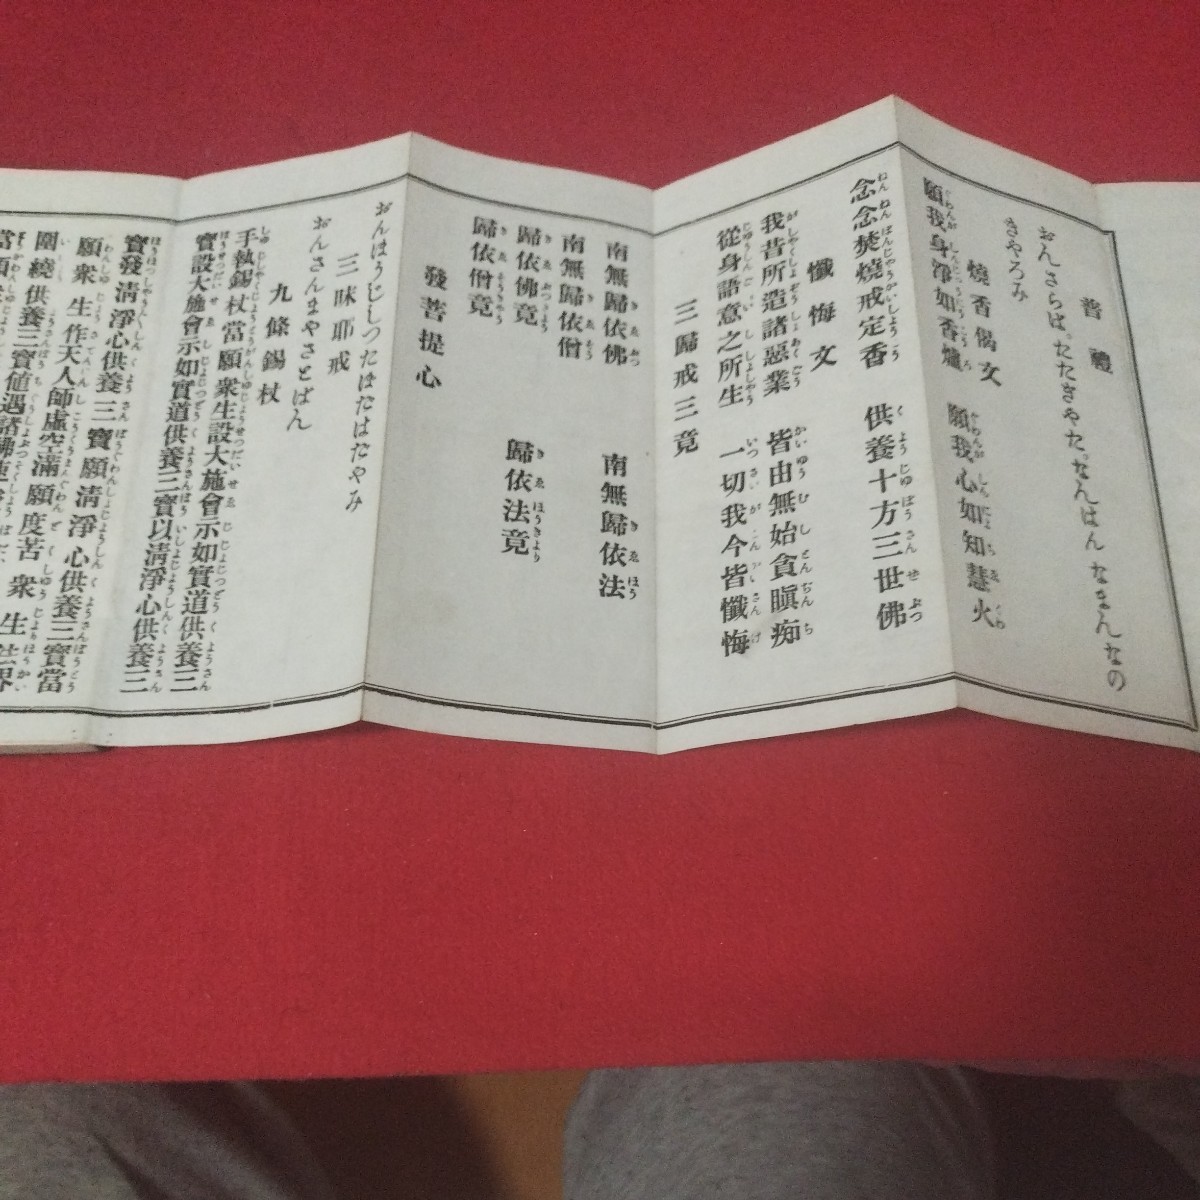 普禮
おんさらばったたきやたなんはんなまんなの
きやろみ
燒香偈文
願我身淨如香爐 願我心如知慧火
念念焚燒戒定香 供養十方三世佛
懺悔文
我昔所造諸惡業 皆由無始貪瞋痴
從身語意之所生 一切我今皆懺悔
三歸戒三竟
南無歸依佛 南無歸依法
南無歸依僧
歸依佛竟 歸依法竟
歸依僧竟
發菩提心
おんぼうじしつたぼだはだやみ
三昧耶戒
おんさんまやさとばん
九條錫杖
手執錫杖當願衆生設大施會示如實道供養三
寶設大施會示如實道供養三寶以清淨心供養三
寶發清淨心供養三寶願清淨心供養三寶當
願衆生作天人師虛空滿願度苦衆生法界
圍繞供養三寶値遇諸佛速